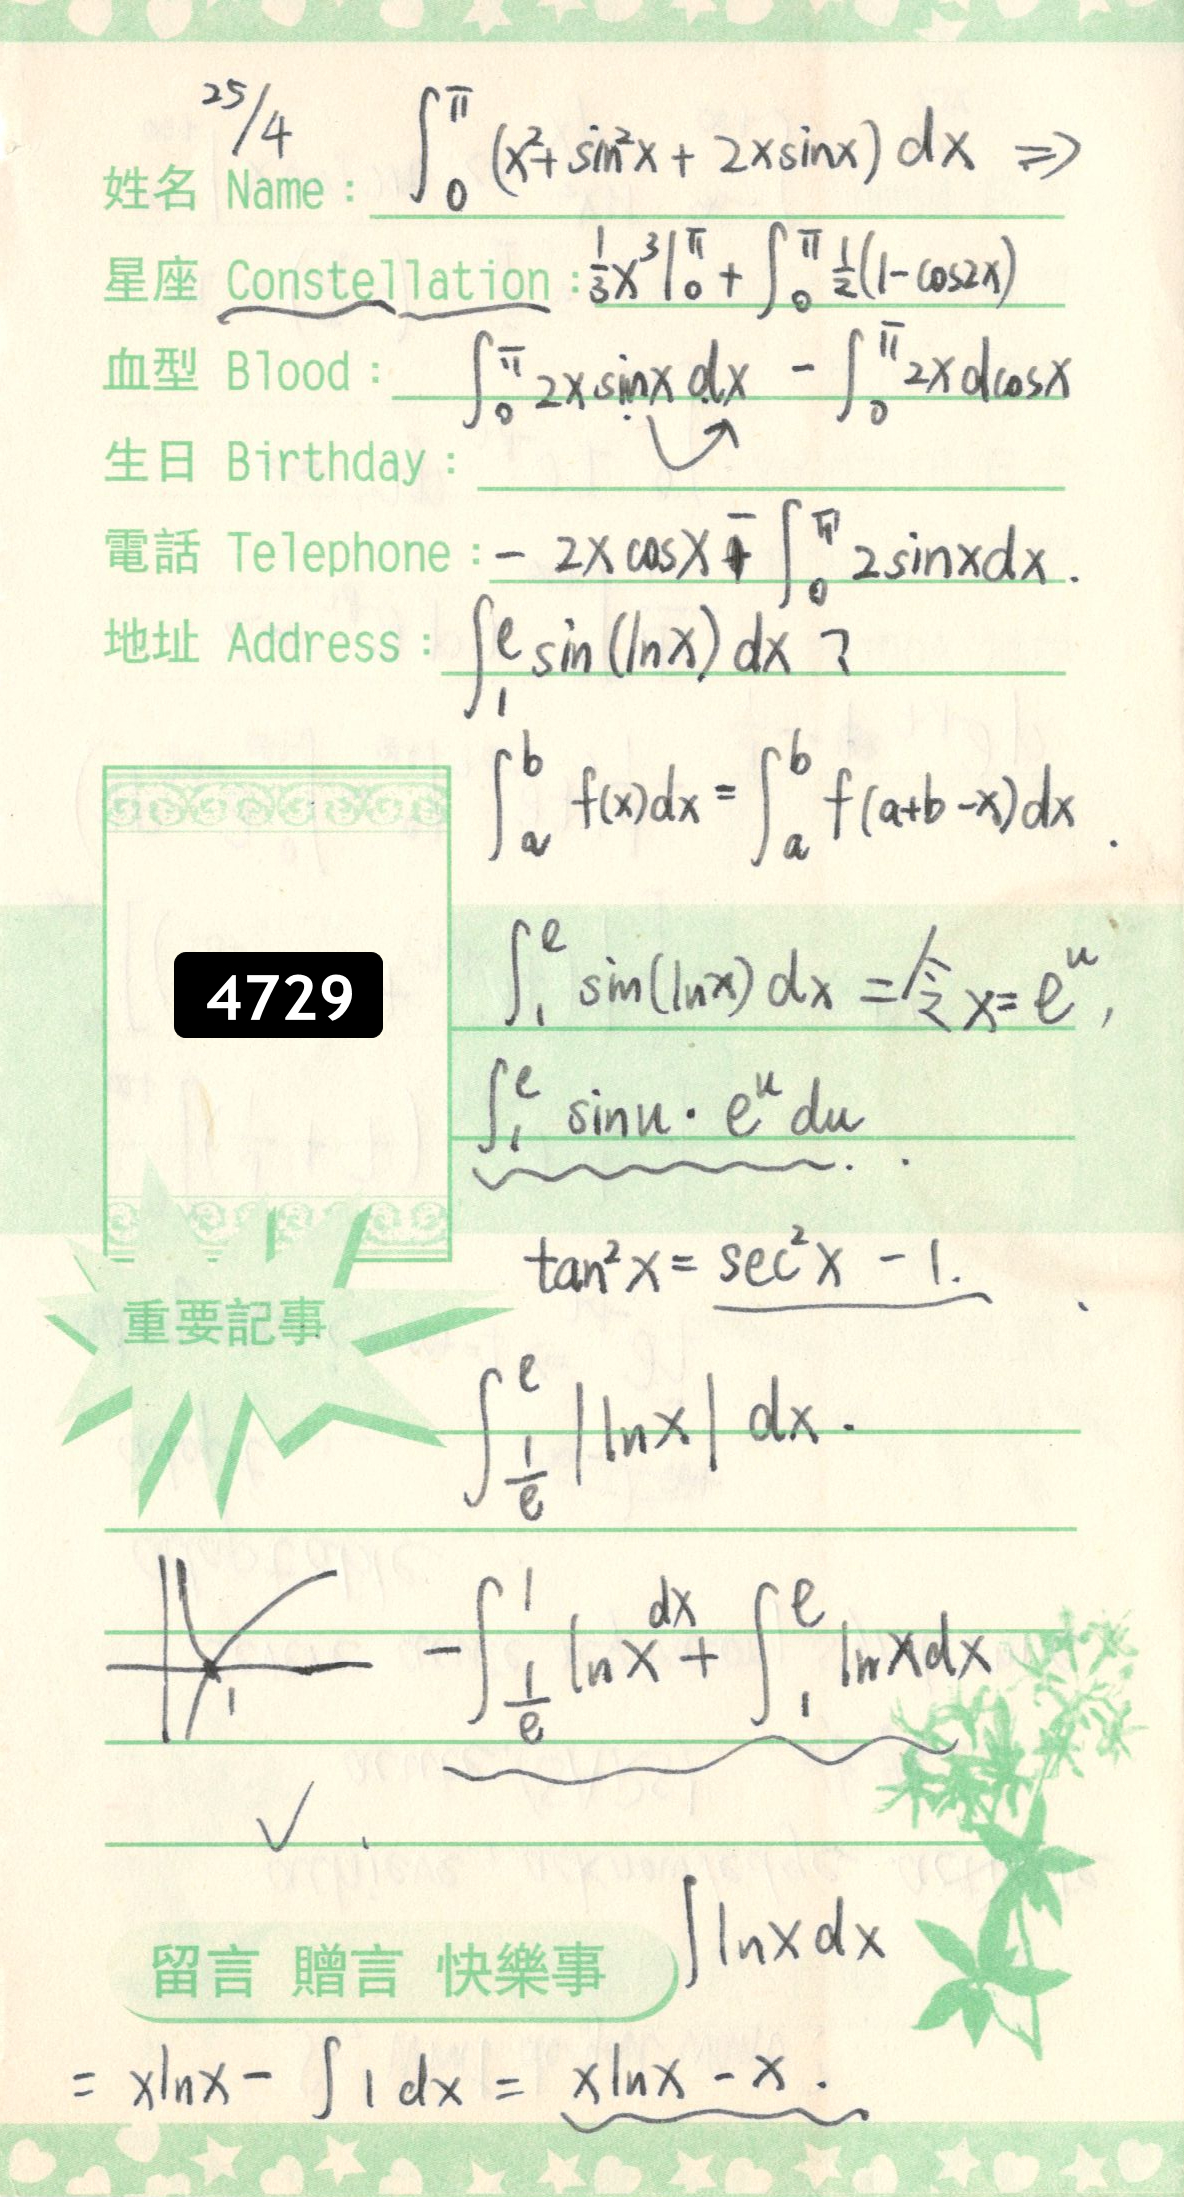 25/4
∫₀^π (x²+ sin²x + 2xsinx) dx ⇒
姓名 Name :
星座 Constellation : 1/3 x³|₀^π + ∫₀^π 1/2(1-cos2x)
血型 Blood : ∫₀^π 2x sinx dx - ∫₀^π 2x dcosx
生日 Birthday :
電話 Telephone : - 2x cosx + ∫₀^π 2sinxdx .
地址 Address : ∫₁^e sin(lnx) dx ?
∫ₐ^b f(x)dx = ∫ₐ^b f(a+b-x)dx .
4729
∫₁^e sin(lnx) dx = 令 x = e^u ,
∫₁^e sinu · e^u du .
tan²x = sec²x - 1.
重要記事
∫_{1/e}^e |lnx| dx .
1
-∫_{1/e}^1 lnx dx + ∫₁^e lnxdx
∫lnxdx
留言 贈言 快樂事
= xlnx - ∫ 1 dx = xlnx - x .